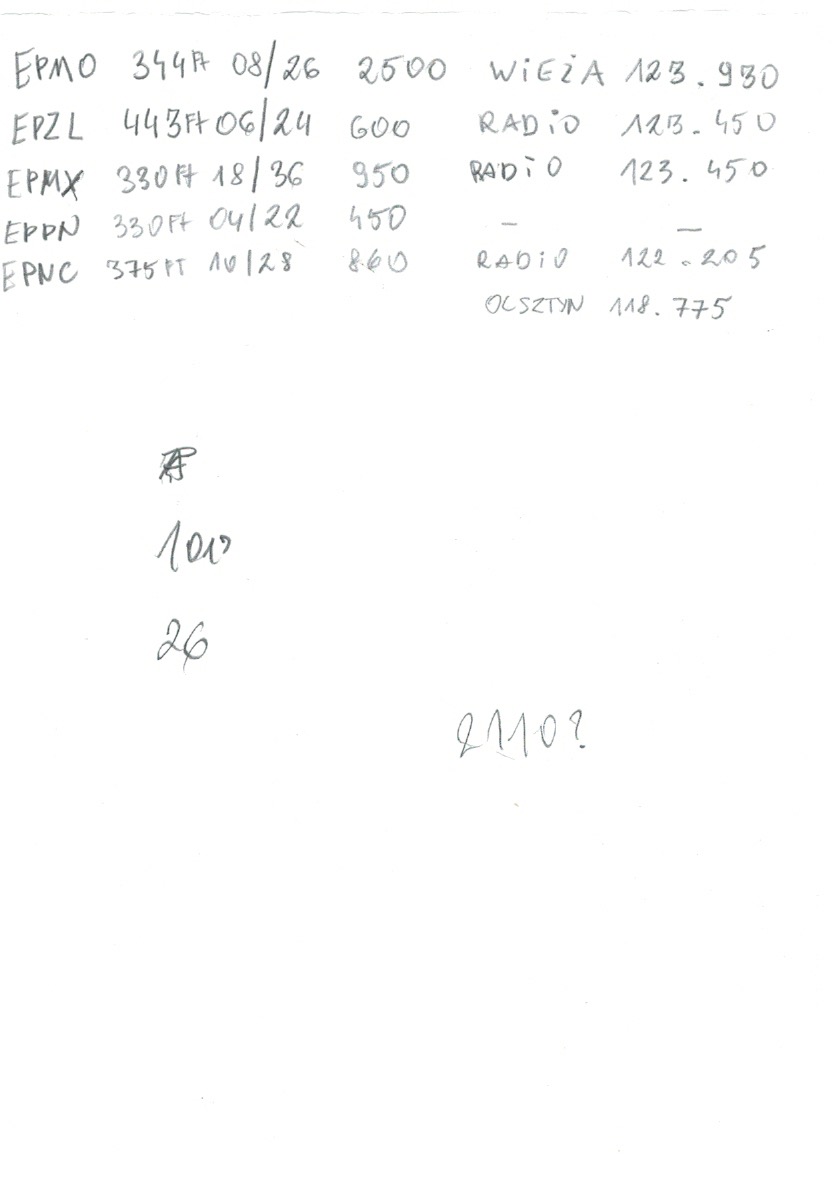 EPMO 344Ft 08/26 2500 WIEŻA 123.930
EPZL 443Ft 06/24 600 RADIO 123.450
EPMX 330Ft 18/36 950 RADIO 123.450
EPPN 330Ft 04/22 450 – –
EPNC 375FT 10/28 860 RADIO 122.205
OLSZTYN 118.775
26
2110?